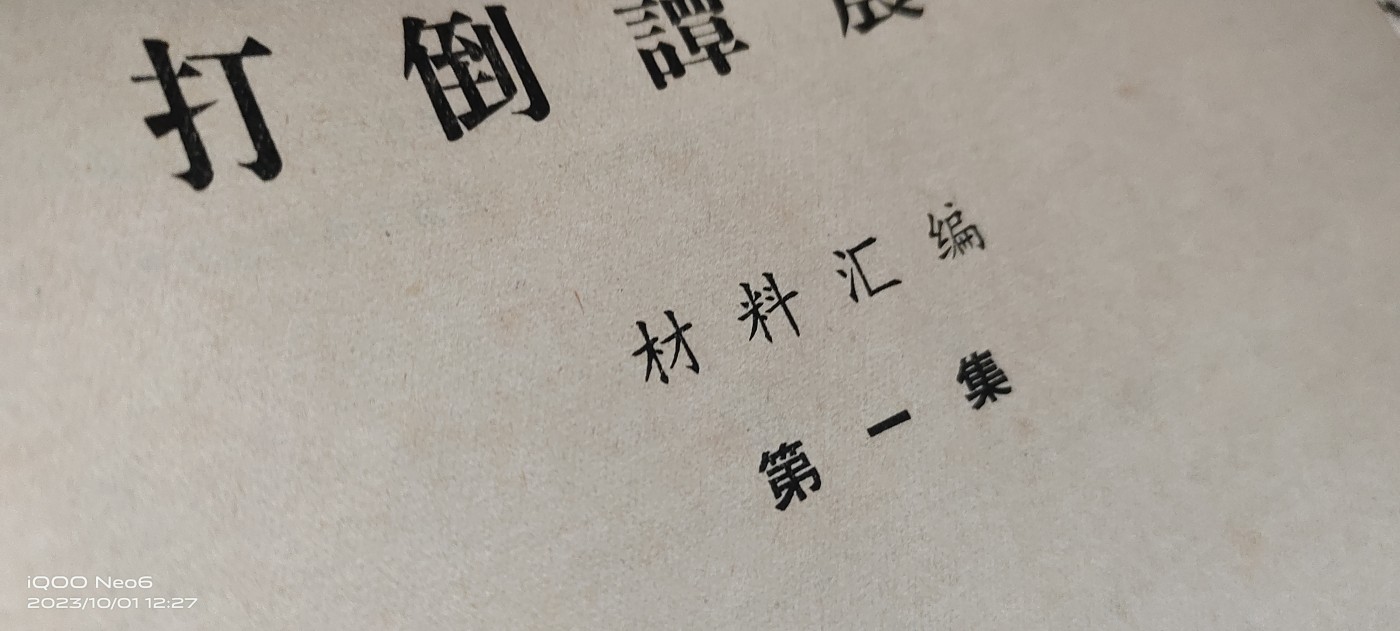 打倒譚
材料汇编
第一集
iQOO Neo6
2023/10/01 12:27